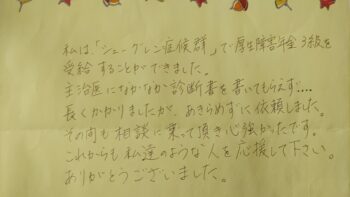 私は、「シェーグレン症候群」で厚生障害年金3級を
受給することができました。
主治医になかなか診断書を書いてもらえず…
長くかかりましたが、あきらめずに依頼しました。
その間も相談に乗って頂き心強かったです。
これからも私達のような人を応援して下さい。
ありがとうございました。